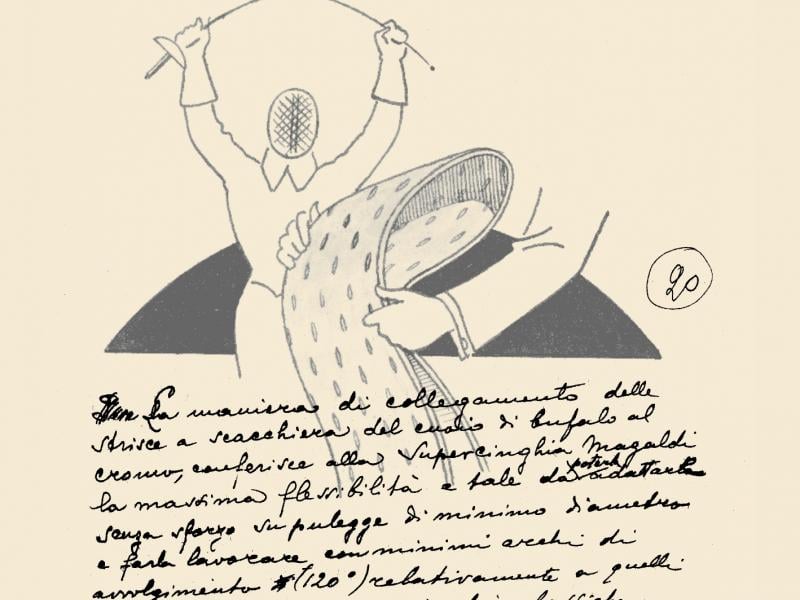 20
La maniera di collegamento delle
strisce a scacchiera del cuoio di bufalo al
cromo, conferisce alla Supercinghia Magaldi
la massima flessibilità e tale da poterla adattare
senza sforzo su pulegge di minimo diametro
e farla lavorare con minimi archi di
avvolgimento (120°) relativamente a quelli